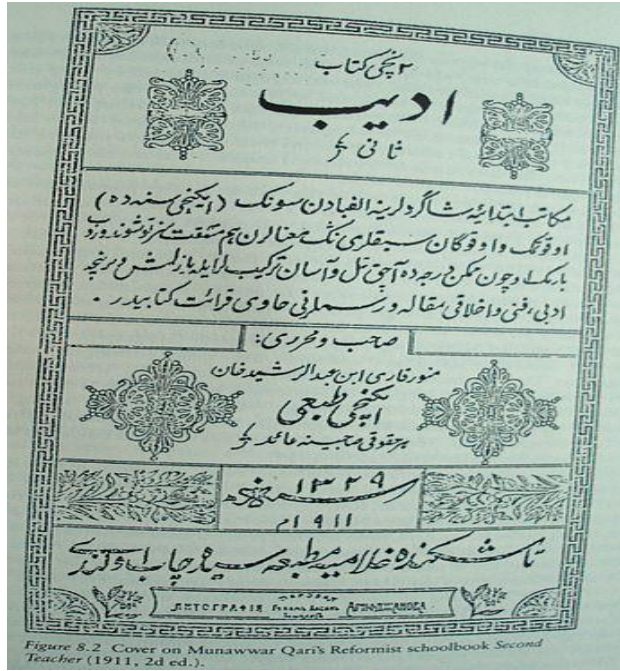 ۲ نچی کتاب
ادیب
ثانی
مکاتب ابتدائیه شاگردلرینه الفبادن سونک (ایکنچی سنه ده)
اوقوتمک و اوقوگان سبقلری نڭ معنالرن هم مشقت سز توشوندورب
بارمک اوچون ممکن درجه ده آچق تل و آسان ترکیب لر ایله یازلمش و بر نچه
ادبی، فنی و اخلاقی مقاله و رسملرنی حاوی قرائت کتابیدر.
صاحب و محرری:
منور قاری ابن عبدالرشید خان
ایکنچی طبعی
هر حقوقی صاحبینه عائددر
سنه ۱۳۲۹ هجری
۱۹۱۱م
تاشکندده غلامیه مطبعه سیده چاپ اولندی
ЛИТОГРАФІЯ
Figure 8.2 Cover on Munawwar Qari's Reformist schoolbook Second
Teacher (1911, 2d ed.).